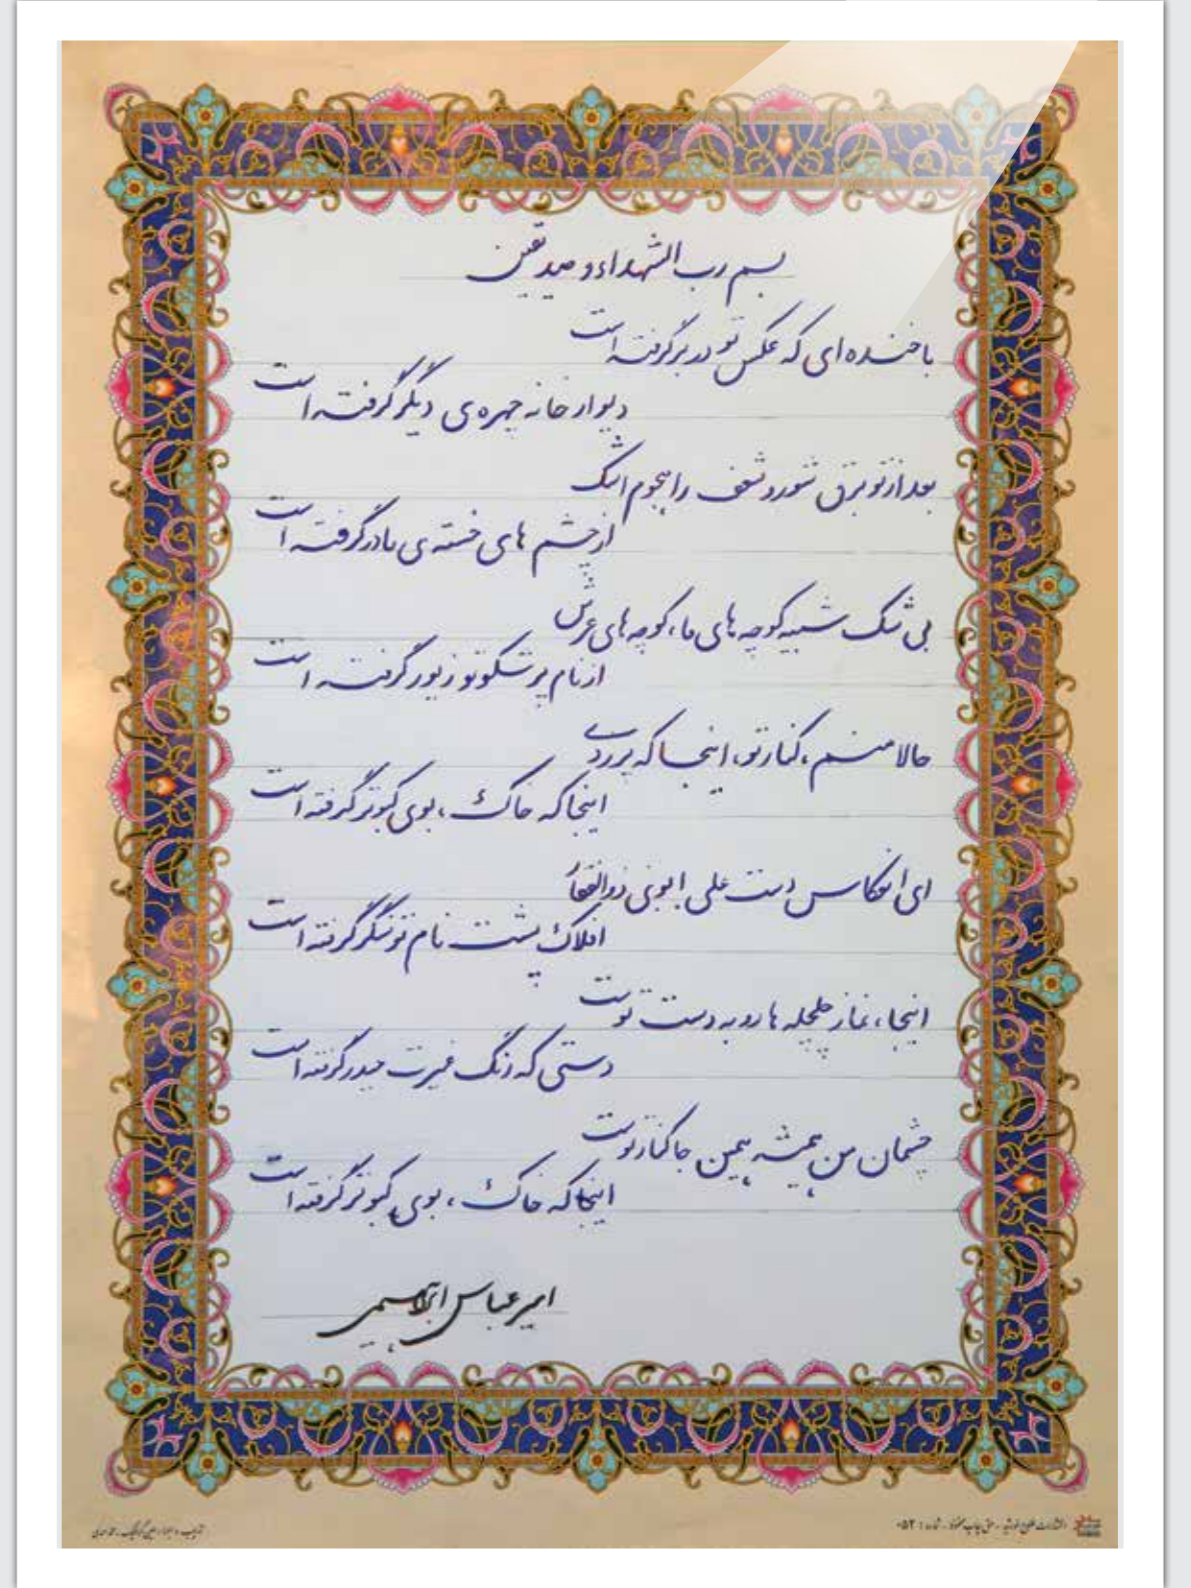 بسم رب الشهداء و صدیقین
با خنده‌ای که عکس تو در بر گرفته است
دیوار خانه چهره‌ی دیگر گرفته است
بعد از تو برق شور و شعف را هجوم اشک
از چشم های خسته ی مادر گرفته است
بی شک شبیه کوچه های ما، کوچه های عرش
از نام پر شکوه تو زیور گرفته است
حالا منم، کنار تو، اینجا که پر زدی
اینجا که خاک، بوی کبوتر گرفته است
ای انعکاس دست علی با ذوالفقار
افلاک پشت نام تو سنگر گرفته است
اینجا، نماز چلچله ها رو به دست توست
دستی که رنگ غیرت حیدر گرفته است
چشمان من همیشه همین جا کنار توست
اینجا که خاک، بوی کبوتر گرفته است
امیر عباس ابراهیمی
حق چاپ محفوظ - شماره : ۰۵۲